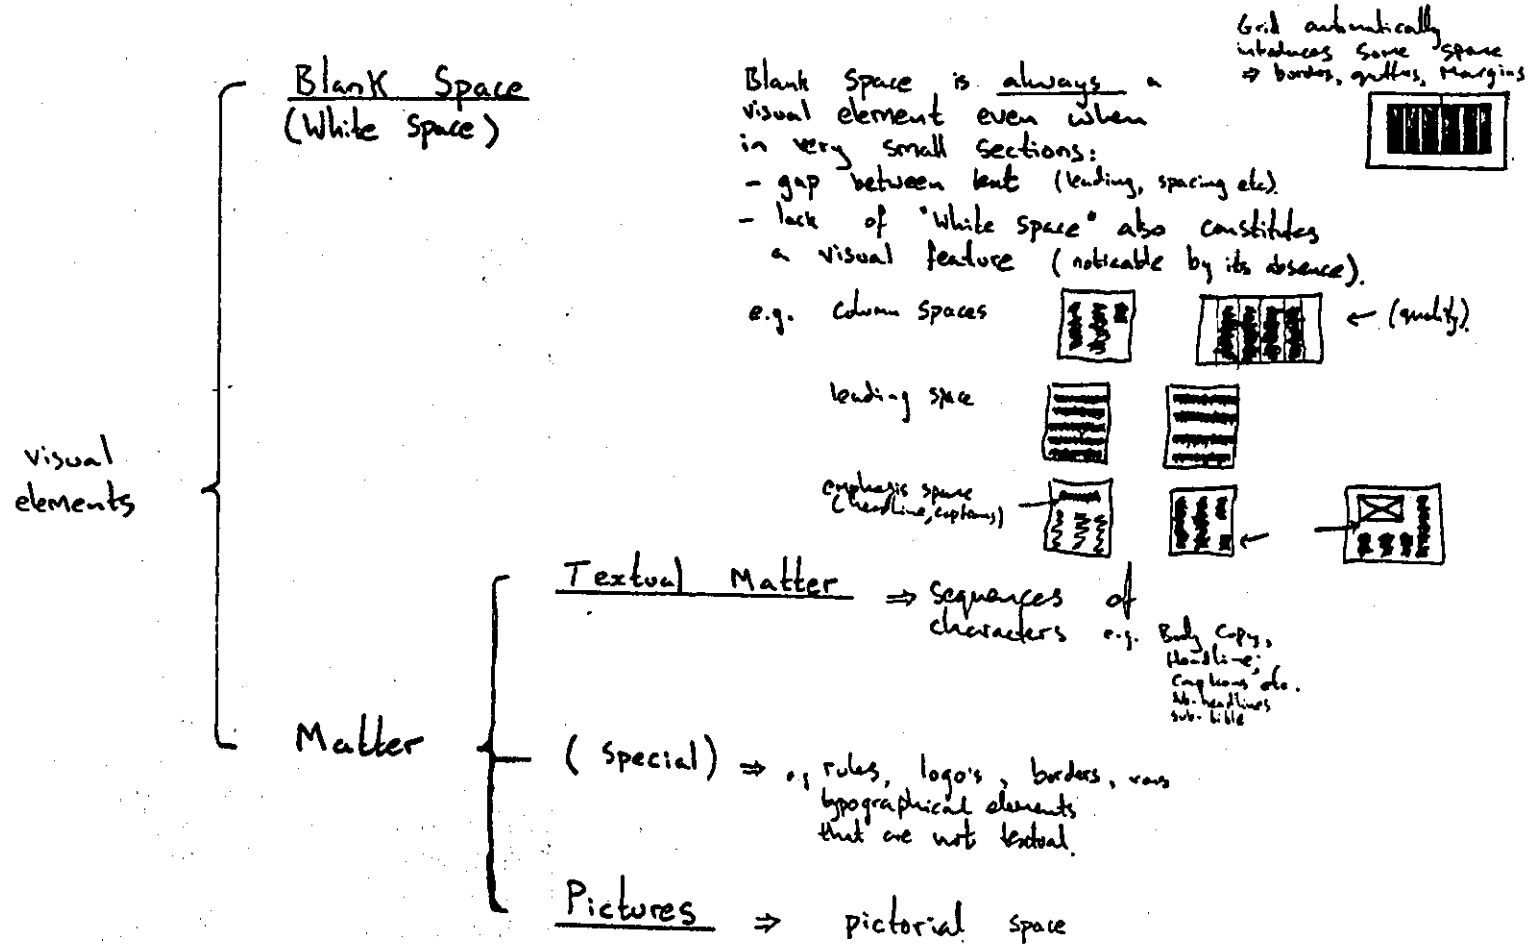 Grid automatically
introduces some space
⇒ borders, gutters, margins
Blank Space
(White Space)
Blank Space is always a
visual element even when
in very small sections:
- gap between text (leading, spacing etc).
- lack of "White Space" also constitutes
a visual feature (noticable by its absence).
e.g. Column Spaces
← (quality).
leading space
emphasis space
(headline, captions)
visual
elements
Textual Matter ⇒ sequences of
characters e.g. Body Copy,
Headline,
Captions etc.
sub-headlines
sub-title
Matter
(Special) ⇒ e.g rules, logo's, borders,
typographical elements
that are not textual.
Pictures ⇒ pictorial space